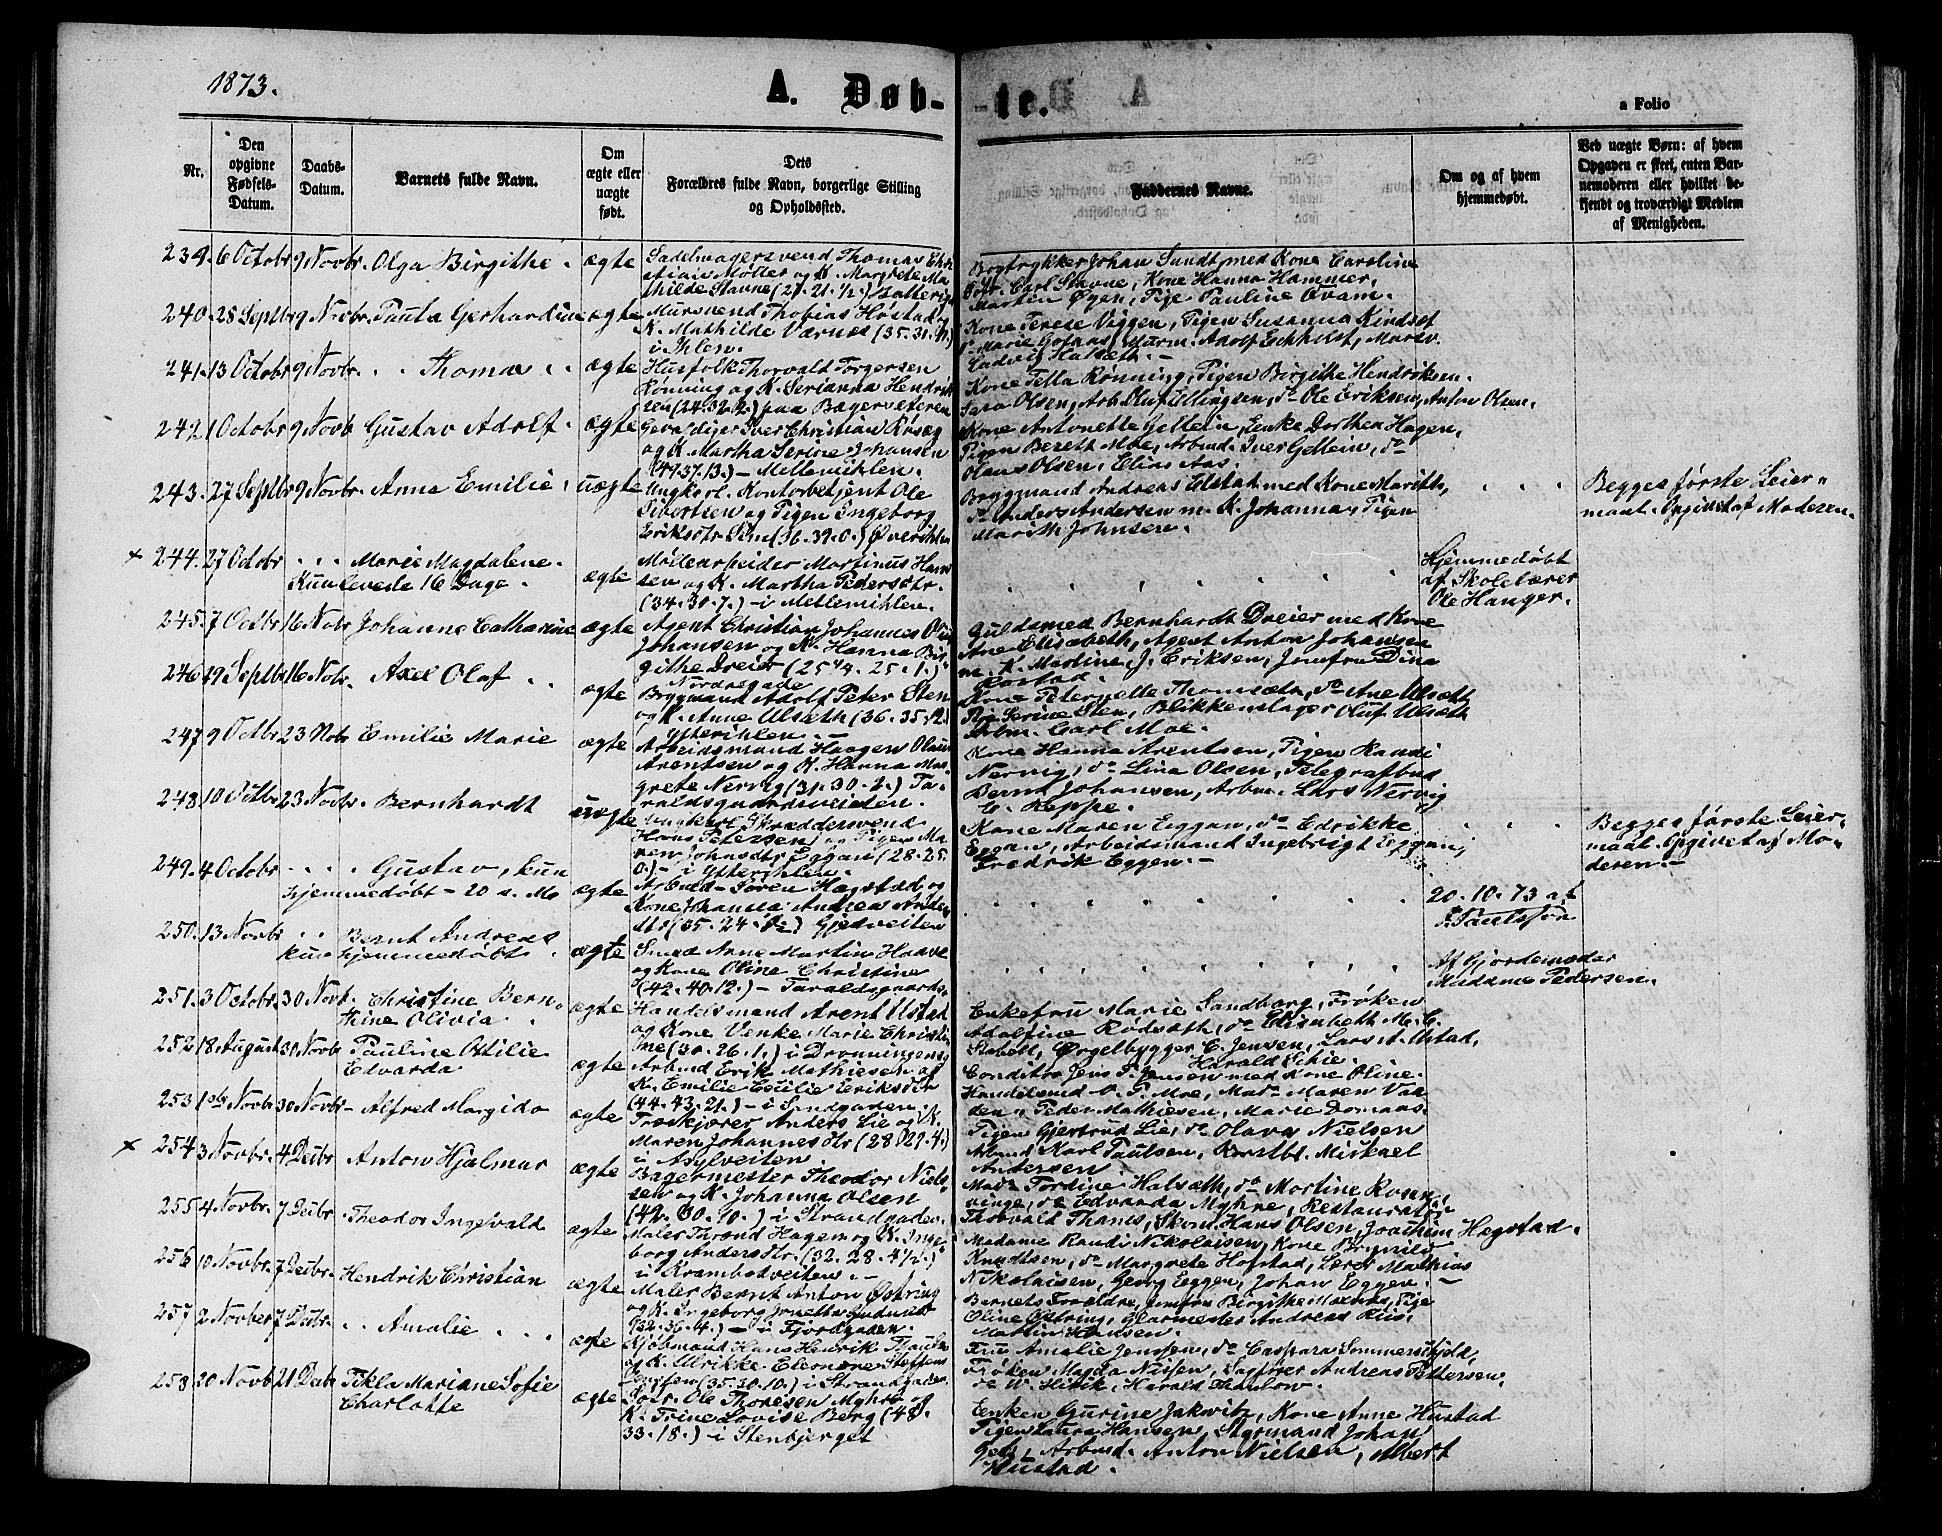 1873.
A. Døb-
-te.
a Folio
Nr.
Den opgivne Fødsels-Datum.
Daabs-Datum.
Barnets fulde Navn.
Om ægte eller uægte født.
Dets Forældres fulde Navn, borgerlige Stilling og Opholdssted.
Faddernes Navne.
Om og af hvem hjemmedøbt.
Ved uægte Børn: af hvem Opgaven er skeet, enten Barnemoderen eller hvilket bekjendt og troværdigt Medlem af Menigheden.
239. 6 Octobr 9 Novbr. Olga Birgithe. ægte
Sadelmagersvend Thomas Chri
stian Møller og K. Margrete Ma
thilde Stavne (27. 21. 1/2.)
Bogtrykker Johan Sundt med Kone Caroline
Carl Stavne, Kone Hanna Hammer,
Martin Øyen, Pige Pauline Qvam.
240. 28 Septbr 9 Novbr. Paula Gerhardine ægte
Mursvend Thobias Høstad og
K. Mathilde Værnes
i Ihlen.
Kone Terese Viggen, Pigen Susanna Kindset
Ludvig Halseth.
241. 13 Octobr 9 Novbr. Thomas ægte
Husfolk Thorvald Torgersen
Rønning og K. Serianna Hendrik
sen (24. 32. 2.) paa Bagerveteren
Kone Tella Rønning, Pigen Birgithe Hendriksen.
Sara Olsen, Arb. Olu Tillingsen, do Ole Eriksen, Anton Olsen.
242. 1 Octobr 9 Novb Gustav Adolf. ægte
Gevaldiger Iver Christian Risæg
og K. Martha Serine Johansen
(49. 37. 13.) - Mellemihlen.
Kone Antonette Gellein, Enke Dorthea Hagen,
Pigen Bereth Moe, Arbmd. Iver Gellein, do
Olaus Olsen, Elias Aas.
243. 27 Septbr 9 Novbr. Anna Emilie. uægte
Ungkarl. Kontorbetjent Ole
Sivertsen og Pigen Ingeborg
Eriksdtr (36. 39. 0.) Øverihlen
Bryggmand Andreas Ulstad med Kone Marith,
do Anders Andersen m. K. Johanna, Pigen
Marith Johnsen.
Begges første Leier=
maal. Opgivet af Moderen.
× 244. 27 Octobr Marie Magdalene.
Kun levede 16 Dage. ægte
Møllearbeider Martinus Han
sen og K. Martha Pedersdtr.
(34. 30. 7.) - i Mellemihlen.
Hjemmedøbt
af Skolelærer
Ole Hanger.
245. 7 Octbr 16 Novbr Johanne Catharine ægte
Agent Christian Johannes Olin
Johansen og K. Hanna Bir
githe Dreier (25 1/4. 25. 1.)
Nordregade
Guldsmed Bernhardt Dreier med Kone
Ane Elisabeth, Agent Anton Johansen
m. K. Martine, J. Eriksen, Jomfru Dina
246. 19 Septbr 16 Novbr. Axel Olaf ægte
Bryggmand Adolf Peter Sten
og K. Anne Ulsæth (36. 35. 12.)
Ytterihlen.
Kone Peternelle Thomsæth, do Ane Ulsæth
Pige Serine Sten, Blikkenslager Oluf Ulsæth
Arbm. Carl Moe.
247. 9 Octbr 23 Novbr Emilie Marie ægte
Arbeidsmand Haagen Olaus
Arentsen og K. Hanna Mar
grete Nervig (31. 30. 2.) Ta-
raldsgaardsveiten.
Kone Hanna Arentsen, Pigen Randi
Nervig, do Lina Olsen, Telegrafbud
Bernt Johansen, Arbm. Lars Nervig
C. Heppe.
248. 10 Octbr 23 Novbr. Bernhardt uægte
Ungkarl Skræddersvend
Hans Petersen og Pigen Ma
ren Johnsdtr Eggan (28. 25.
0.) - i Ytterihlen.
Kone Maren Eggan, do Edrikke
Eggan, Arbeidsmand Ingebrigt Eggan,
Fredrik Eggen.
Begges første Leier-
maal. Opgivet af Mo-
deren.
249. 4 Octobr Gustav, kun
hjemmedøbt - 20 s. M. ægte
Arbmd. Søren Hagstad og
Kone Johanna Andrea
(35. 24. ) Gjedveiten
20. 10. 73 af
Paulsson
250. 13 Novbr Bernt Andreas
kun hjemmedøbt. ægte
Smed Arne Martin Haave
og Kone Oline Christine
(42. 40. 12.) - Taraldsgaards.
Af Gjordemoder
Madame Pedersen.
251. 3 Octobr. 30 Novb. Christine Bern-
thine Olivia. ægte
Handelsmand Arent Ustad
og Kone Venke Marie Christi
ine (30. 26. 1.) i Dronningensg
Enkefru Marie Sandborg, Frøken
Adolfine Rødsæth, do Elisabeth M. C.
Stabell, Orgelbygger C. Jensen, Lars A. Ustad,
Harald Schie.
252. 18 August 30 Novb Pauline Otilie
Edvarda ægte
Arbmd Erik Mathiesen og
K. Emilie Cecilie Eriksdtr
(44. 43. 21.) - i Sandgaden.
Conditor Jens P. Jensen med Kone Oline.
Handelsmd. O. P. Moe, Mad. Maren Vaa
den, Peder Mathiesen, Marie Domaas.
253. 1ste Novbr 30 Novbr - Alfred Margido ægte
Træskjærer Anders Lie og K.
Maren Johannesdtr (28 1/2 29. 4.)
i Asylveiten.
Pigen Gjertrud Lie, do Olava Nielsen
Arbmd Karl Paulsen, Mickael
Andersen
× 254. 3 Novbr. 4 Decbr Anton Hjalmar ægte
Bagermester Theodor Niel-
sen og K. Johanna Olsen
(42. 30. 10.) i Strandgaden.
Mad. Fordine Halsæth, do Martine Rosen
vinge, do Edvarda Myhre, Restauratør
Thorvald Thanes, Hans Olsen, Joachim Hegstad.
255. 4 Novbr. 7 Decbr. Theodor Ingevald ægte
Maler Thrond Hagen og K. Inge-
borg Andersdtr. (32. 28. 4 1/2.)
i Krambodveiten.
Madame Randi Nikolaisen, Kone Brynild
Knudtsen, do Margrete Hofstad, Lærer Mathias
Nikolaisen, Georg Eggen, Johan Eggen.
256. 10 Novbr. 7 Decbr. Hendrik Christian ægte
Maler Bernt Anton Østring
og K. Ingeborg Jonetta
(32. 36. 4.) - i Fjordgaden.
Barnets Forældre, Jomfru Birgithe Moxness, Pige
Oline Østring, Glarmester Andreas Riis,
Martin Hansen.
257. 2 Novber 7 Decbr. Amalie ægte
Kjøbmand Hans Henrik Thaulo
og K. Ulrikke Elenore Steffens
Jenssen (35. 30. 10.) i Strandgaden.
Fru Amalie Jenssen, do Caspara Sommerschjeld,
Frøken Magda Nilsen, Sagfører Andreas Pettersen,
do W. Hirik, Harald Thaulow.
258. 20 Novb 21 Decb Tekla Mariane Sofie
Charlotte ægte
Ole Thoresen Myhre og
K. Trine Lovise Berg (48.
33. 18.) i Stenbjerget
Enken Gurine Jakwitz, Kone Anne Hustad
Pigen Laura Hansen, Styrmand Johan
Arbmd. Anton Nielsen, Albert
Hustad.